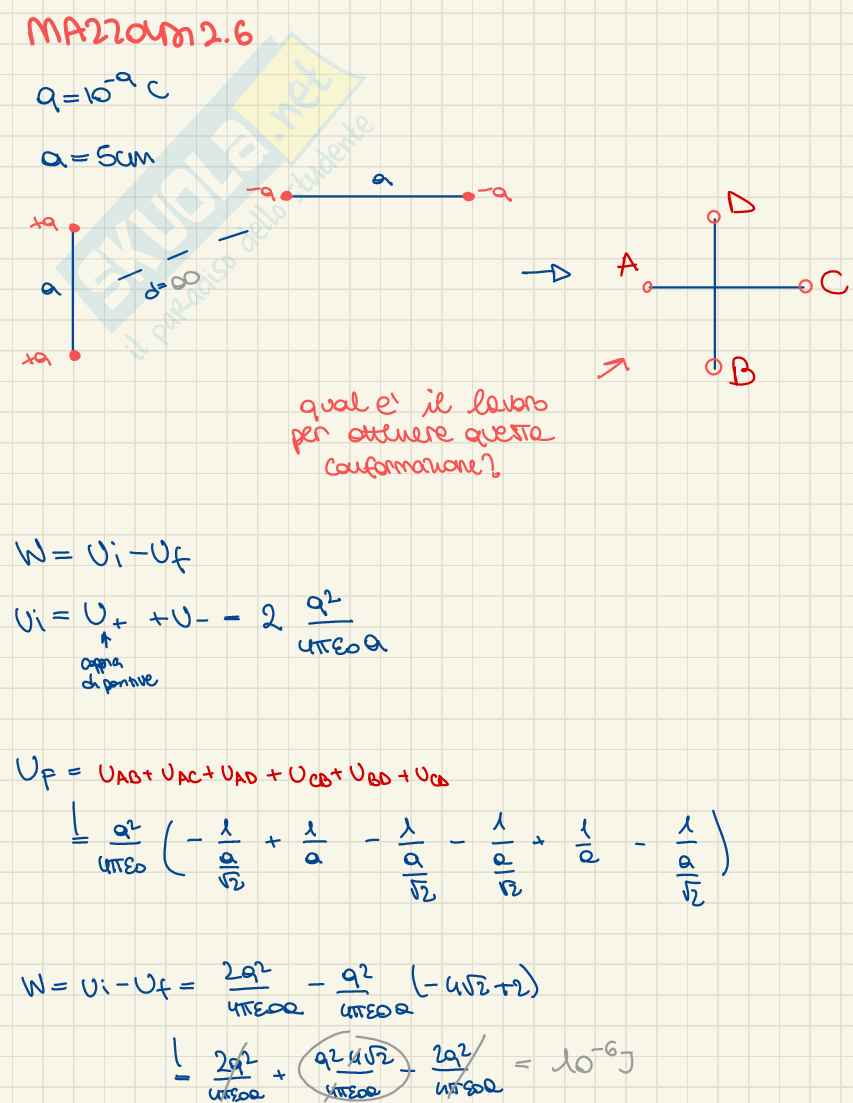 MAZZOLDI 2.6
q = 10⁻⁹ C
a = 5cm
SKUOLA.net
il paradiso dello studente
-q a -q
+q
a
d=∞
+q
A D C B
qual e' il lavoro
per ottenere questa
conformazione?
W = Ui - Uf
Ui = U+ + U- = 2 q²/4πε0a
coppia
di positive
Uf = UAB + UAC + UAD + UCB + UBD + UCD
= q²/4πε0 ( - 1/(a/√2) + 1/a - 1/(a/√2) - 1/(a/√2) + 1/a - 1/(a/√2) )
W = Ui - Uf = 2q²/4πε0a - q²/4πε0a (-4√2+2)
= 2q²/4πε0a + q²4√2/4πε0a - 2q²/4πε0a = 10⁻⁶J